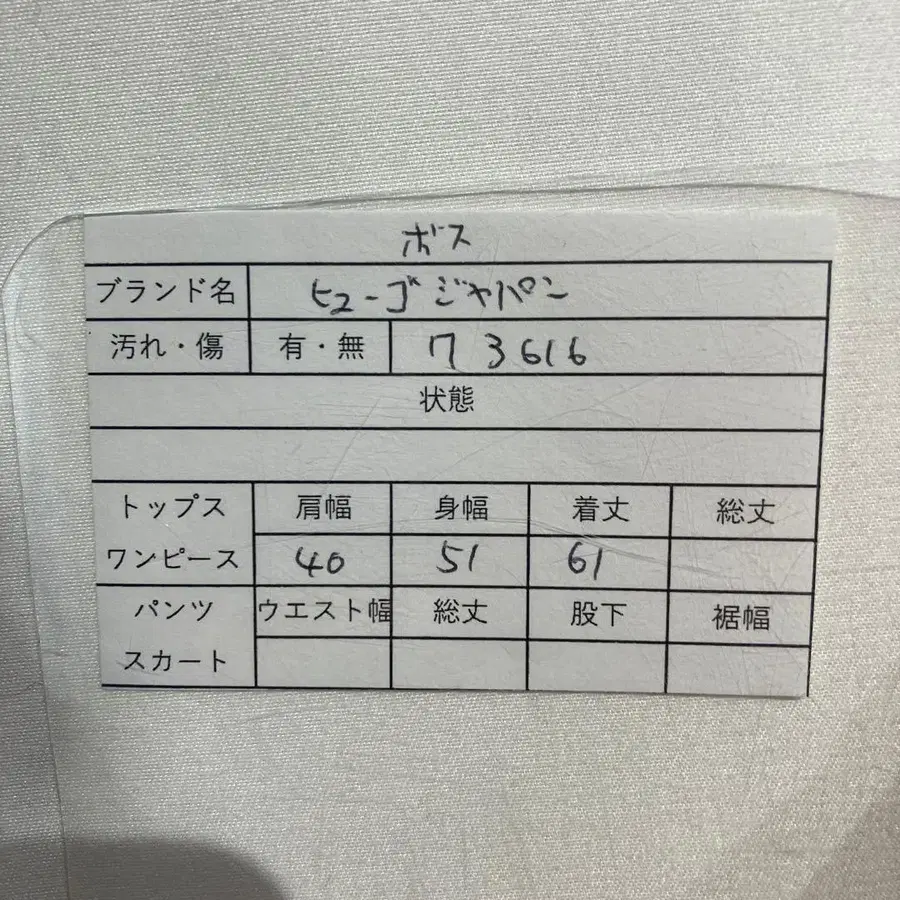 ボス
ブランド名 ヒューゴジャパン
汚れ・傷 有・無 ワ3616
状態
トップス 肩幅 身幅 着丈 総丈
ワンピース 40 51 61
パンツ ウエスト幅 総丈 股下 裾幅
スカート